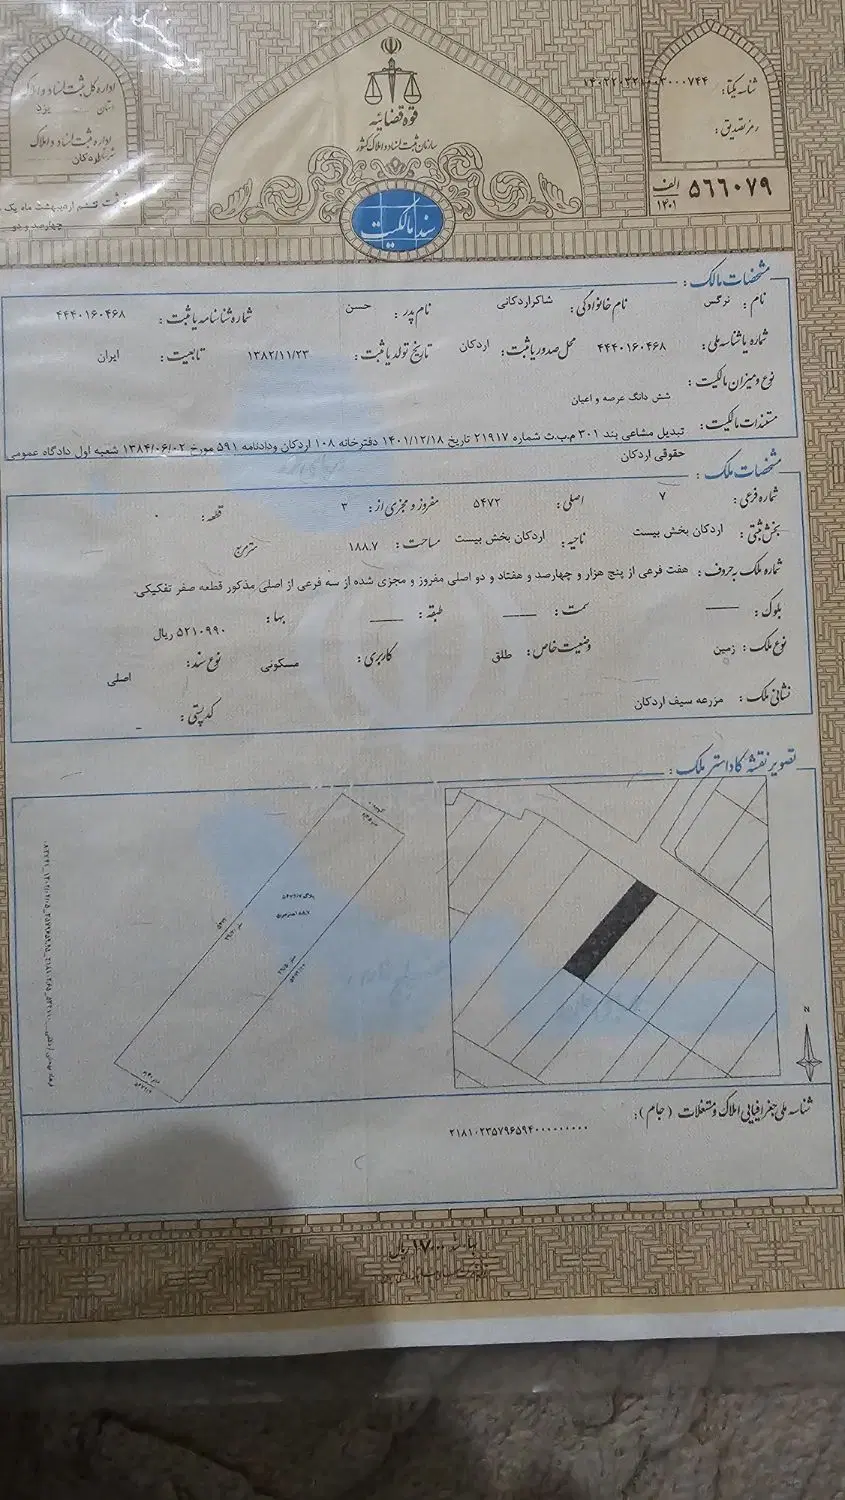 اداره کل ثبت اسناد و املاک
استان یزد
اداره ثبت اسناد و املاک
شهرستان اردکان
قوه قضائیه
سازمان ثبت اسناد و املاک کشور
شناسه یکتا:
رمز تصدیق:
۵۶۶۰۷۹ الف
۱۴۰۱
چهارصد و دو
سند مالکیت
مشخصات مالک:
نام: نرگس نام خانوادگی: شاکراردکانی نام پدر: حسن شماره شناسنامه یا ثبت: ۴۴۴۰۱۶۰۴۶۸
شماره یا شناسه ملی: ۴۴۴۰۱۶۰۴۶۸ محل صدور یا ثبت: اردکان تاریخ تولد یا ثبت: ۱۳۸۲/۱۱/۲۳ تابعیت: ایران
نوع و میزان مالکیت:
شش دانگ عرصه و اعیان
مستندات مالکیت: تبدیل مشاعی بند ۳۰۱ م.ب.ث شماره ۲۱۹۱۷ تاریخ ۱۴۰۱/۱۲/۱۸ دفترخانه ۱۰۸ اردکان ودادنامه ۵۹۱ مورخ ۱۳۸۴/۰۶/۰۲ شعبه اول دادگاه عمومی
حقوقی اردکان
مشخصات ملک:
شماره فرعی: ۷ اصلی: ۵۴۷۲ مفروز و مجزی از: ۳ قطعه: ۰
بخش ثبتی: اردکان بخش بیست ناحیه: اردکان بخش بیست مساحت: ۱۸۸.۷ مترمربع
شماره ملک به حروف: هفت فرعی از پنج هزار و چهارصد و هفتاد و دو اصلی مفروز و مجزی شده از سه فرعی از اصلی مذکور قطعه صفر تفکیکی.
بلوک: —— سمت: —— طبقه: —— بها: ۵۲۱۰۹۹۰ ریال
نوع ملک: زمین وضعیت خاص: طلق کاربری: مسکونی نوع سند: اصلی
نشانی ملک: مزرعه سیف اردکان کد پستی: -
تصویر نقشه کاداستر ملک:
N
شناسه ملی جغرافیایی املاک و مستغلات (جام):